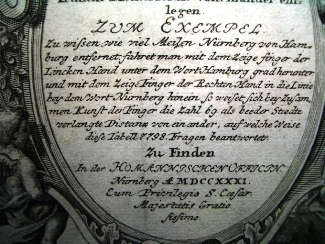 legen.
ZUM EXEMPEL.
Zu wißen, wie viel Meilen Nürnberg von Ham-
burg entfernet: fähret man mit dem Zeige finger der
Lincken Hand unter dem Wort Hamburg grad herunter
und mit dem Zeige Finger der Rechten Hand in die Linie
bey dem Wort Nürnberg hinein, so weiset sich bey Zusam̄en
Kunft der Finger die Zahl 69 als beeder Staedte
verlangte Distanz von einander, auf welche Weise
diese Tabell 7798. Fragen beantwortet.
Zu Finden
In der HOMÆNNISCHEN OFFICIN
Nürnberg A MDCCXXXI.
Cum Privilegio S. Cæsar
Majestatis Gratio
sissimo.